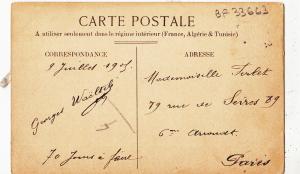 8F 33663
CARTE POSTALE
A utiliser seulement dans le régime intérieur (France, Algérie & Tunisie)
CORRESPONDANCE
ADRESSE
Juillet
Georges
70 Jours à faire
Mademoiselle
79 rue de Sèvres 79
6me Arrondt.
Paris